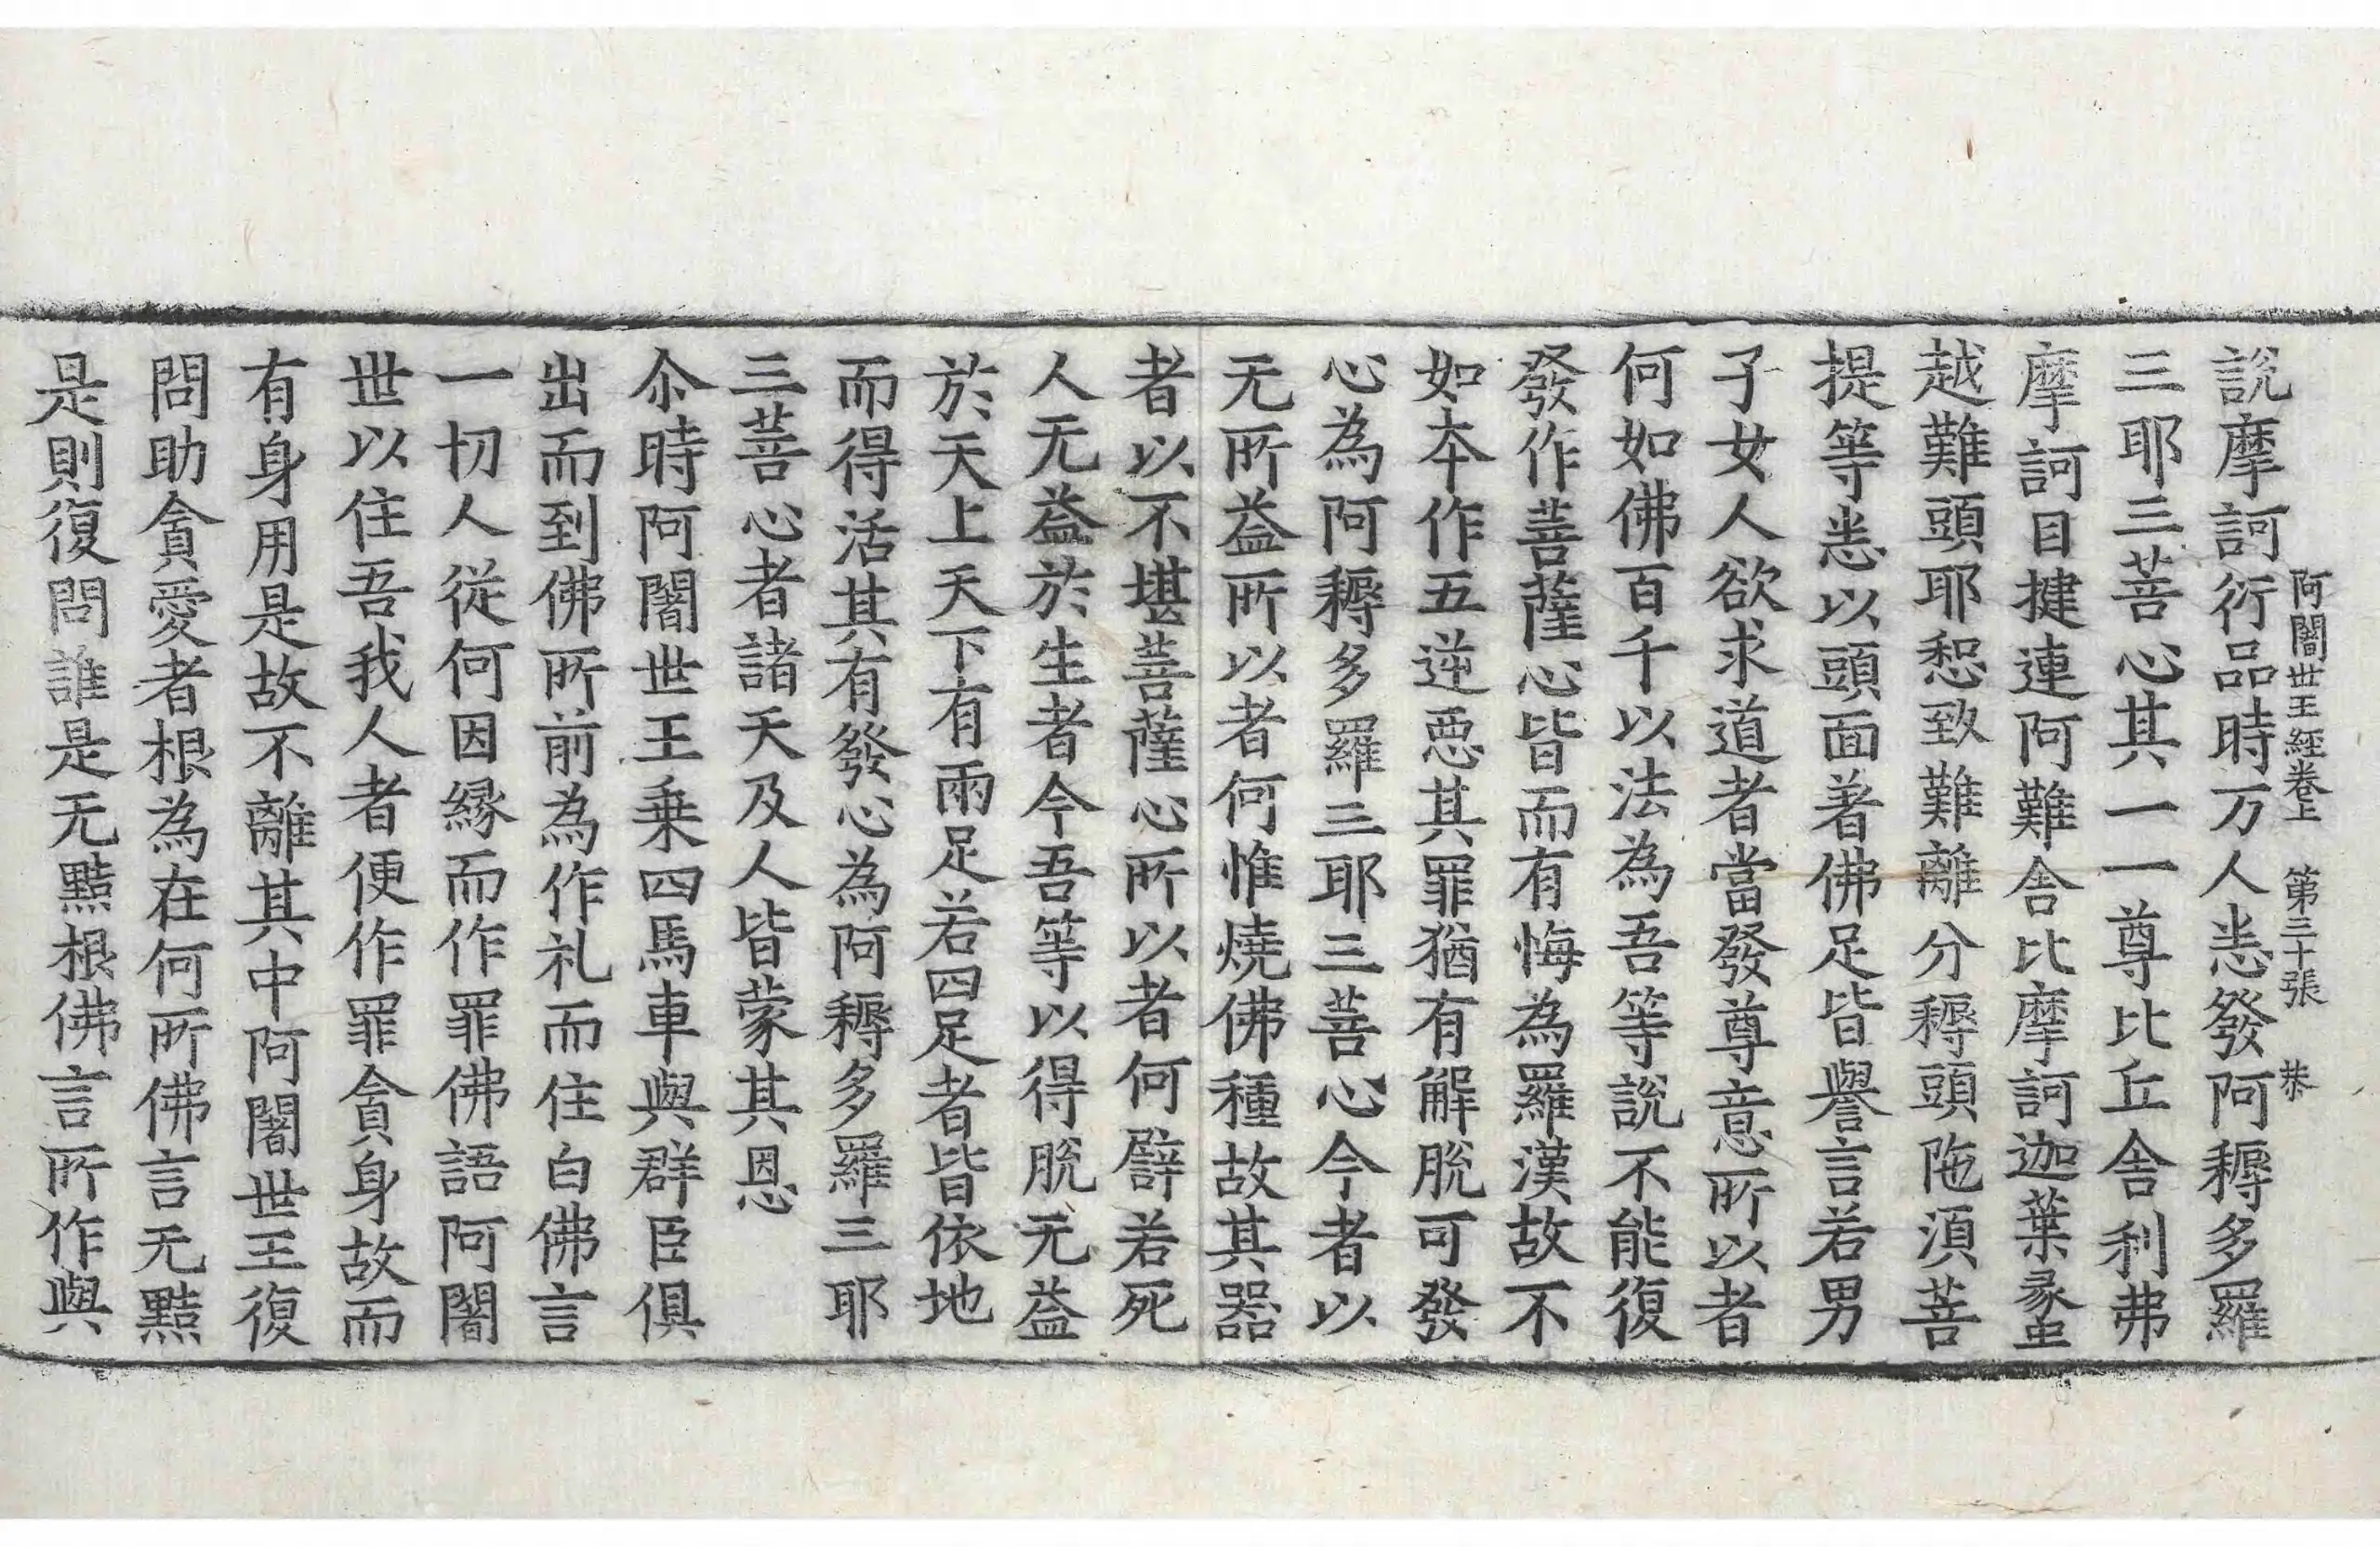 阿闍世王経卷上　第三十張　恭
說摩訶衍品時万人悉發阿耨多羅
三耶三菩心其一一尊比丘舍利弗
摩訶目揵連阿難舍比摩訶迦葉蠡
越難頭耶惒致難離分耨頭陁湏菩
提等悉以頭面著佛足皆譽言若男
子女人欲求道者當發尊意所以者
何如佛百千以法為吾等說不能復
發作菩薩心皆而有悔為羅漢故不
如本作五逆惡其罪猶有解脫可發
心為阿耨多羅三耶三菩心今者以
无所益所以者何惟燒佛種故其器
者以不堪菩薩心所以者何譬若死
人无益於生者今吾等以得脫无益
於天上天下有兩足若四足者皆依地
而得活其有發心為阿耨多羅三耶
三菩心者諸天及人皆蒙其恩
尒時阿闍世王乗四馬車與群臣俱
出而到佛所前為作礼而住白佛言
一切人從何因縁而作罪佛語阿闍
世以住吾我人者便作罪貪身故而
有身用是故不離其中阿闍世王復
問助貪愛者根為在何所佛言无黠
是則復問誰是无黠根佛言所作與